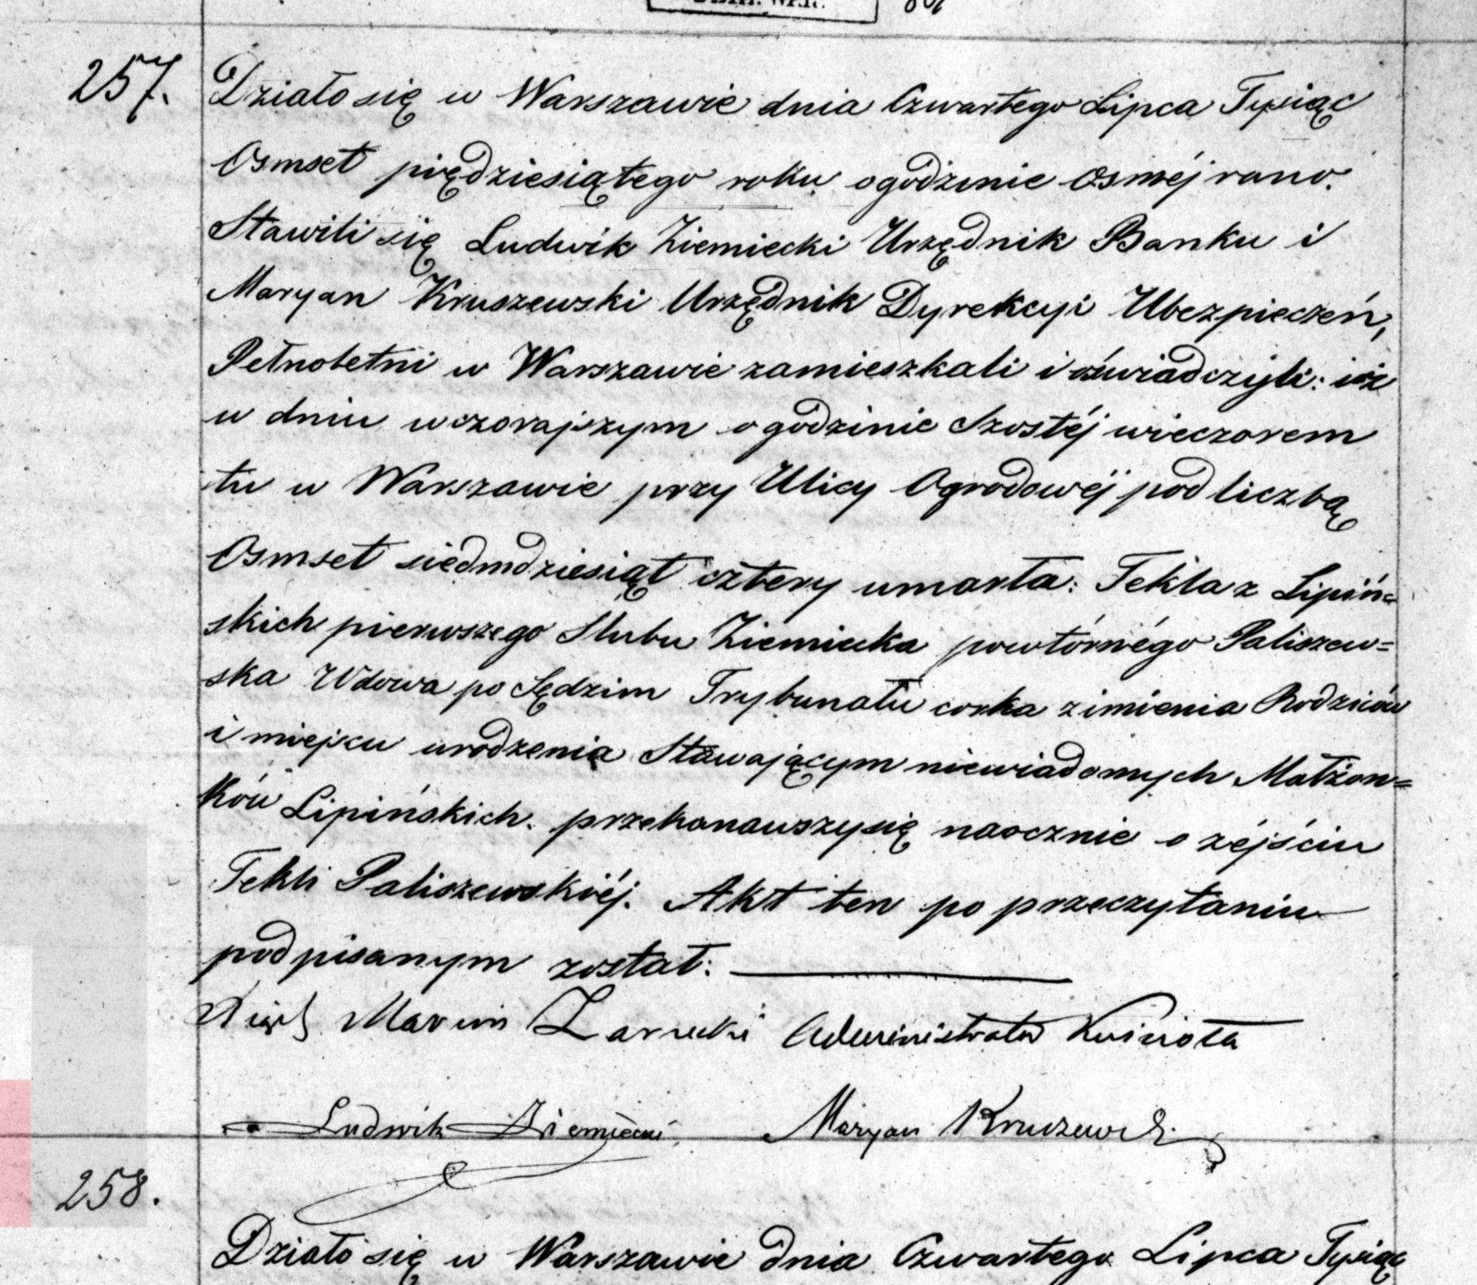 257.
Działo się w Warszawie dnia Czwartego Lipca Tysiąc
Osmset pięDziesiątego roku o godzinie osméj rano.
Stawili się Ludwik Ziemiecki Urzędnik Banku i
Maryan Kruszewski Urzędnik Dyrekcyi Ubezpieczeń,
Pełnoletni w Warszawie zamieszkali i oświadczyli: iż
w dniu wczorajszym o godzinie Szostéj wieczorem
tu w Warszawie przy Ulicy Ogrodowéj pod liczbą
Osmset siedmdziesiąt cztery umarła: Tekla z Lipiń=
skich pierwszego Slubu Ziemiecka powtórnégo Paliszew=
ska Wdowa po Sędzim Trybunału corka z imienia Rodziców
i miejscu urodzenia Stawającym niewiadomych Małżon=
ków Lipińskich. przekonawszy się naocznie o zéjściu
Tekli Paliszewskiéj. Akt ten po przeczytaniu
podpisanym został:
Marcin Administrator Kościoła
Ludwik Ziemiecki Maryan Kruszewski
258.
Działo się w Warszawie dnia Czwartego Lipca Tysiąc